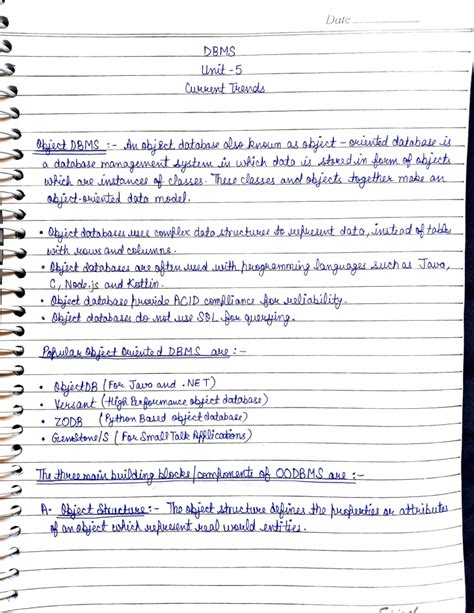 Date
DBMS
Unit - 5
Current Trends
Object DBMS :- An object database also known as object - oriented database is
a database management system in which data is stored in form of objects
which are instances of classes. These classes and objects together make an
object-oriented data model.
• Object databases uses complex data structures to represent data, instead of table
with rows and columns.
• Object databases are often used with programming languages such as Java,
C, Node.js and Kotlin.
• Object database provide ACID compliance for reliability.
• Object databases do not use SQL for querying.
Popular Object Oriented DBMS are :-
• ObjectDB (For Java and .NET)
• Versant (High Performance object database)
• ZODB (Python Based object database)
• GemStone/S (For Small Talk Applications)
The three main building blocks/components of OODBMS are :-
A- Object Structure :- The object structure defines the properties or attributes
of an object which represent real world entities.